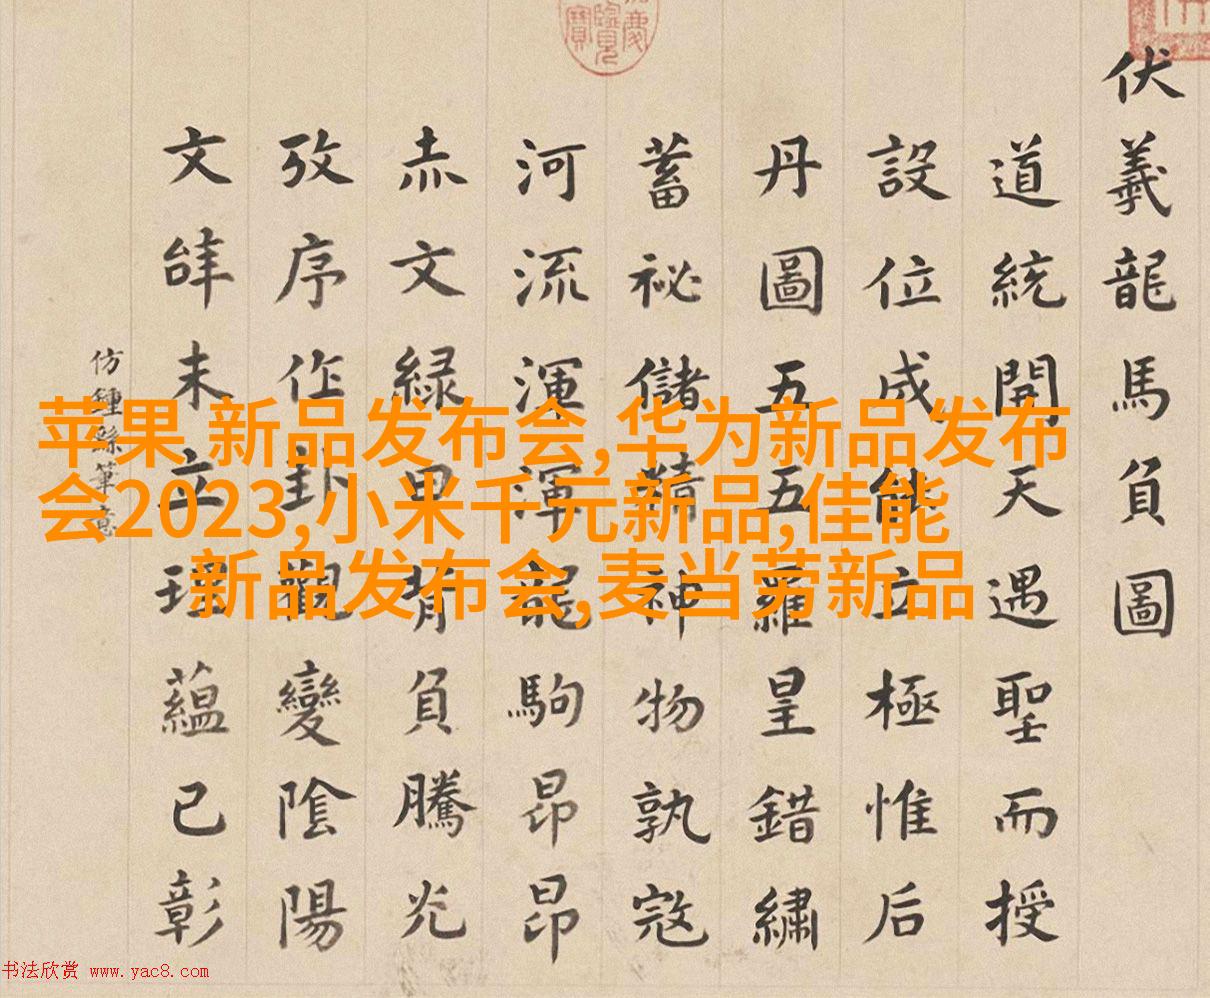 伏羲龍馬負圖
道統開天遇聖而授
設位成能立極惟后
丹圖五五羅皇錯繡
蓄祕儲精神物孰寇
河流渾渾龍駒昂昂
赤文緑甲背負騰光
攷序作卦觀變陰陽
文辝未立理蘊已彰
仿鍾繇筆意
苹果 新品发布会,华为新品发布
会2023,小米千元新品,佳能
新品发布会,麦当劳新品
书法欣赏 www.yac8.com